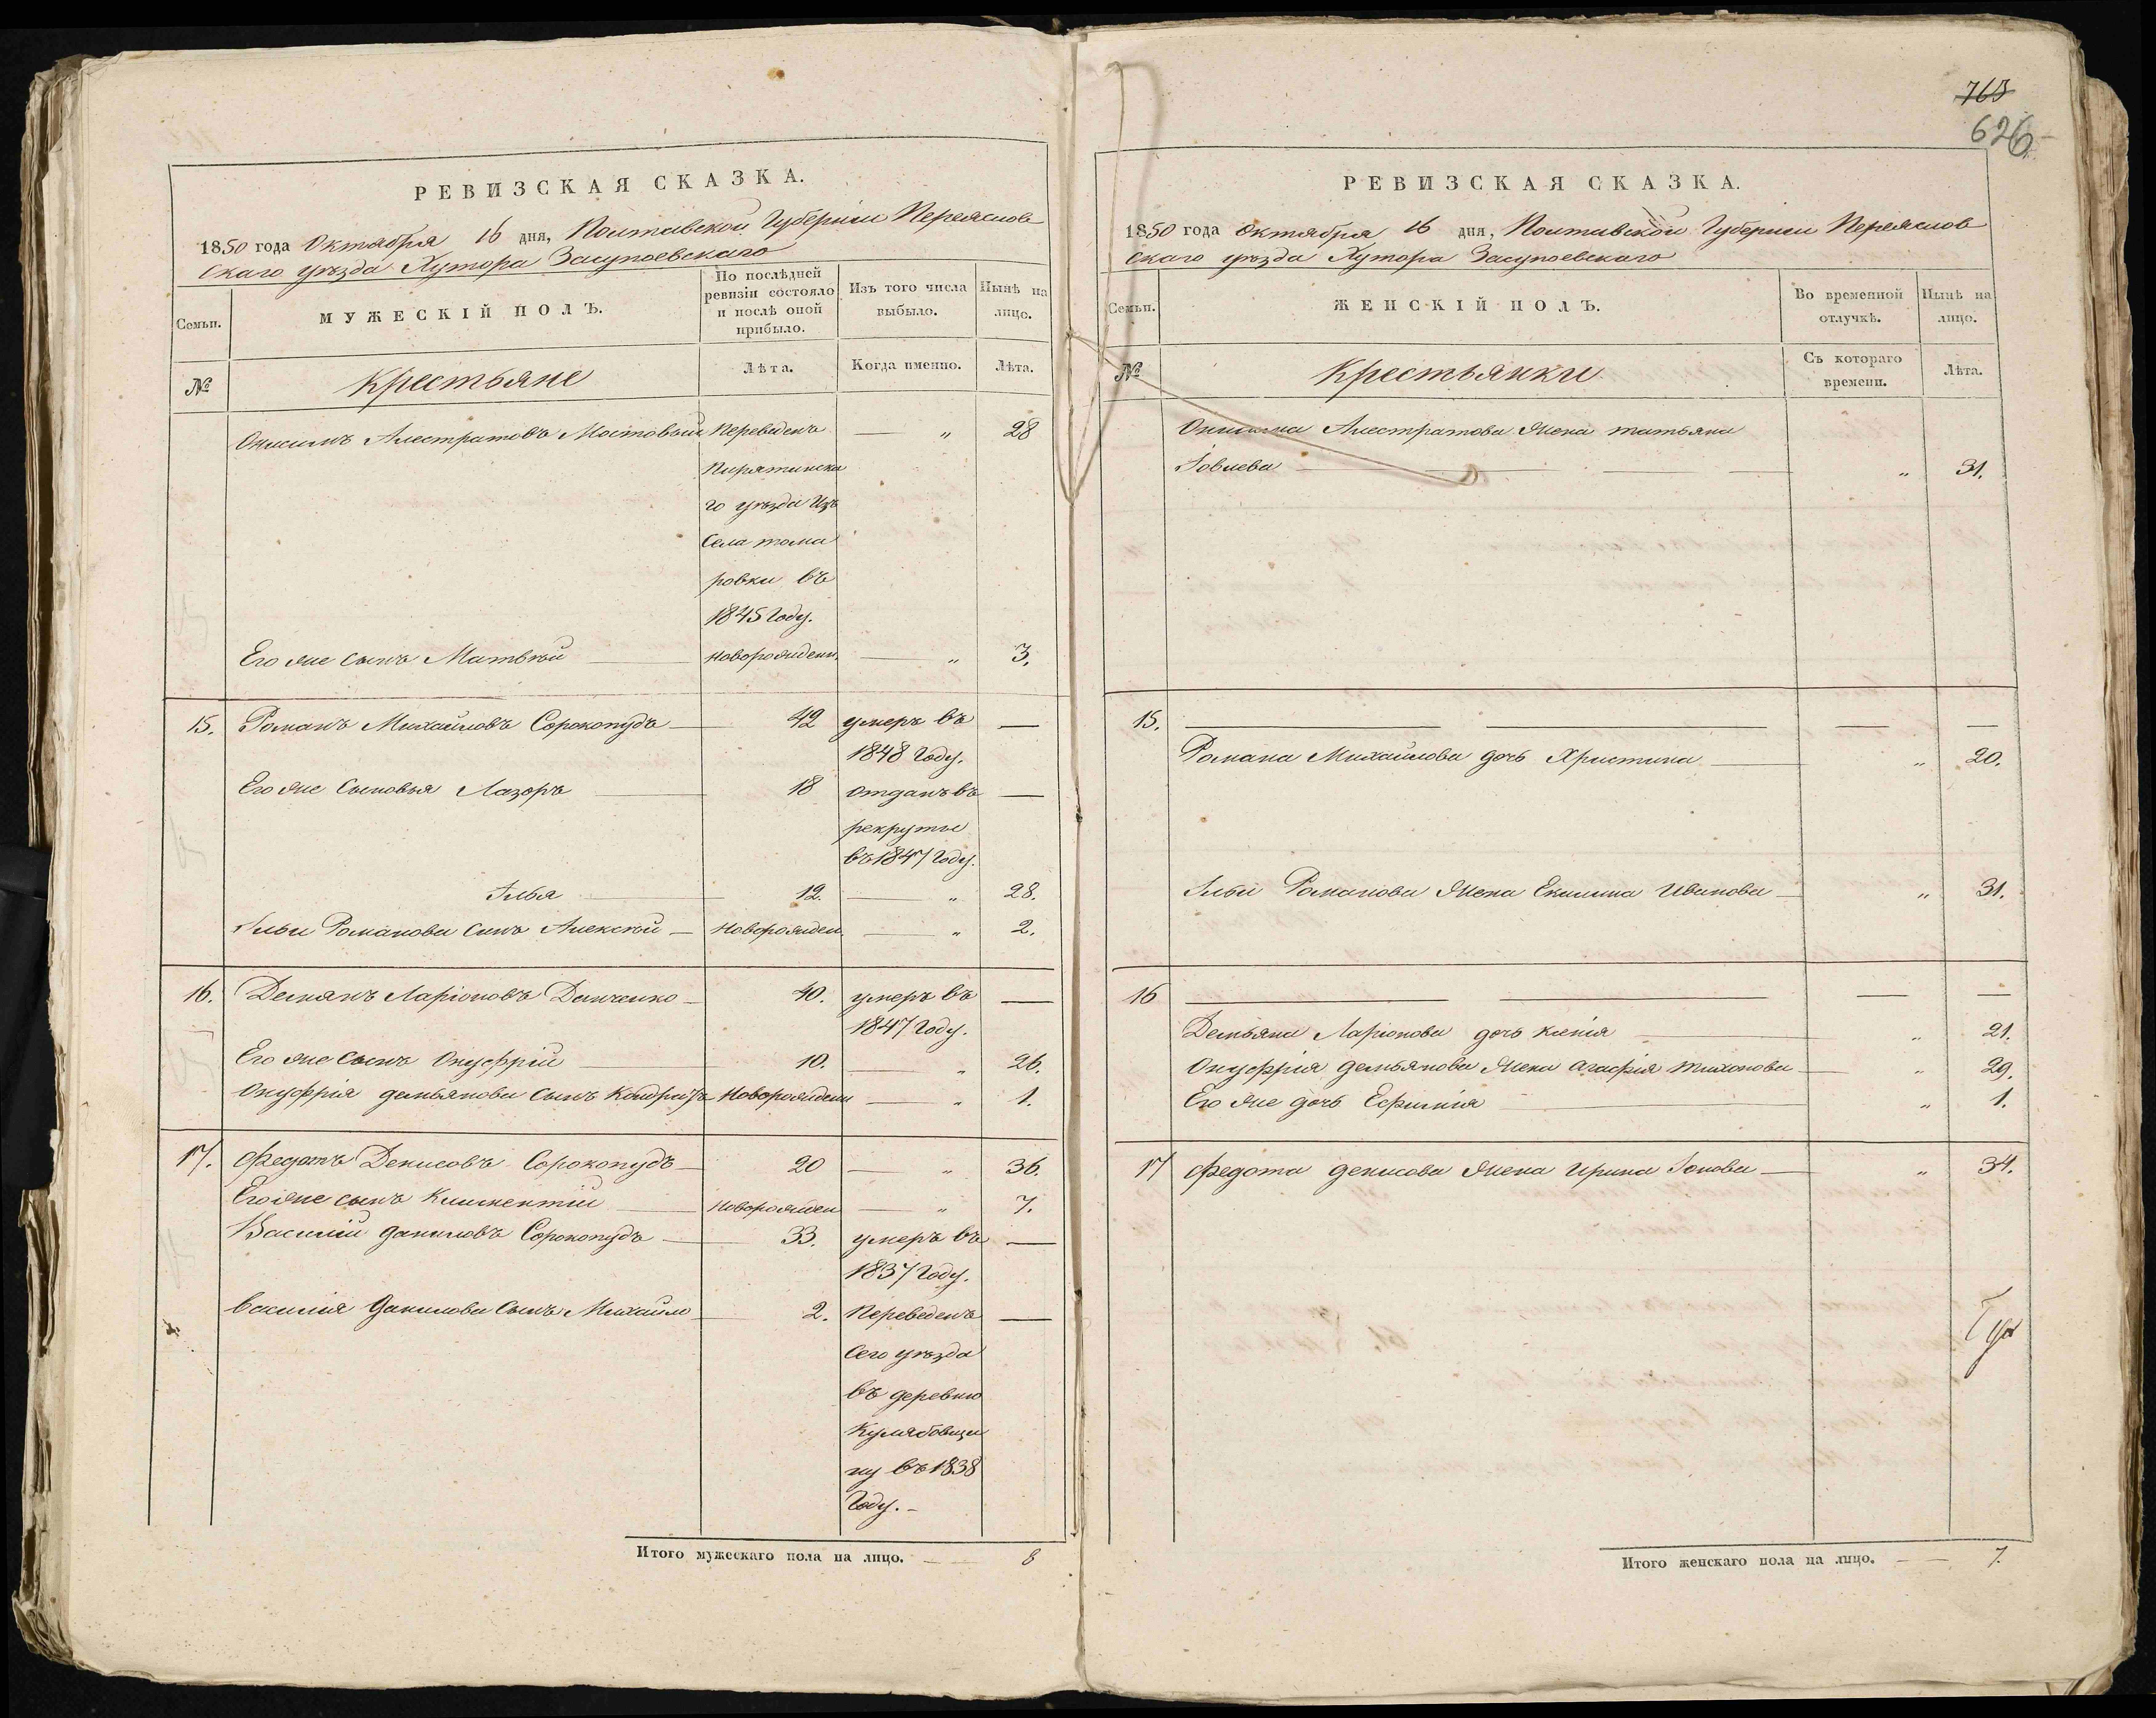 РЕВИЗСКАЯ СКАЗКА.
1850 года Октября 16 дня, Полтавской Губернии Переяслов
скаго уѣзда Хутора Засупоевскаго
Семьи.
МУЖЕСКІЙ ПОЛЪ.
По послѣдней
ревизіи состояло
и послѣ оной
прибыло.
Изъ того числа
выбыло.
Нынѣ на
лицо.
№
Крестьяне
Лѣта.
Когда именно.
Лѣта.
Онисимъ Алестратовъ Мостовый Переведенъ — „ 28
Пирятинска
го уѣзда Изъ
Села тома
ровки въ
1845 Году.
Его же сынъ Матвѣй — новорожденн. — „ 3.
15. Романъ Михайловъ Сорокопудъ — 42 умеръ въ —
1848 Году.
Его же Сыновья Лазоръ — 18 отданъ въ —
рекруты
въ 1847 Году.
Илья — 12. — „ 28.
Ильи Романова сынъ Алексѣй — Новорожден. — „ 2.
16. Демянъ Ларіоновъ Демченко — 40. умеръ въ —
1847 Году.
Его же Сынъ Онуфрій — 10. — „ 26.
Онуфрія демьянова Сынъ Кондратъ Новорожденн — „ 1.
17. Федотъ Денисовъ Сорокопудъ — 20 — „ 36.
Его же сынъ Климентій — новорожден — „ 7.
Василій даниловъ Сорокопудъ — 33. умеръ въ —
1837 Году.
василія Данилова Сынъ Михайло — 2. Переведенъ —
Сего уѣзда
въ деревню
Кулябовщи
ну въ 1838
Году. –
Итого мужескаго пола на лицо. — 8
765
626
РЕВИЗСКАЯ СКАЗКА.
1850 года Октября 16 дня, Полтавской Губернии Переяслов
скаго уѣзда Хутора Засупоевскаго
Семьи.
ЖЕНСКІЙ ПОЛЪ.
Во временной
отлучкѣ.
Нынѣ на
лицо.
№
Крестьянки
Съ котораго
времени.
Лѣта.
Онисима Алестратова Жена татьяна
Іовлева — „ 31.
15. — — — —
Романа Михайлова дочь Христина — „ 20.
Ильи Романова Жена Екилина Иванова — „ 31.
16 — — — —
Демьяна Ларіонова дочь ксенія — „ 21.
Онуфрія демьянова Жена агафія тихонова — „ 29.
Его же дочь Ефимія — „ 1.
17 Федота денисова Жена Ирина Іонова — „ 34.
Итого женскаго пола на лицо. — 7.